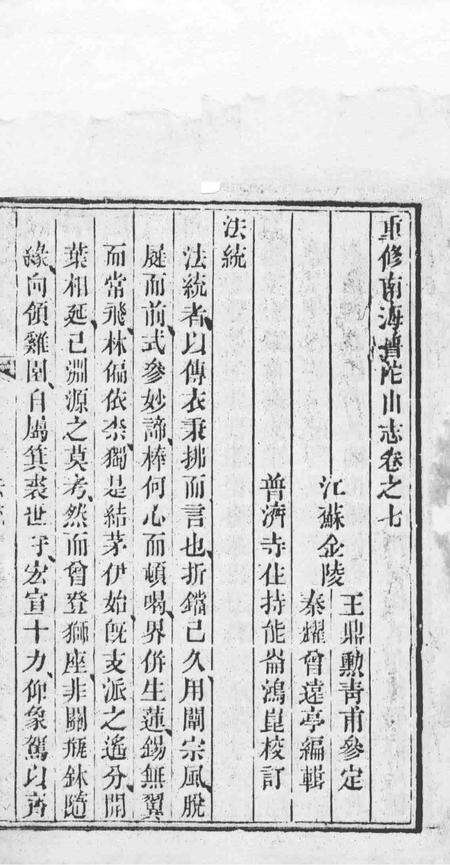 重修南海普陀山志卷之七
江蘇金陵
王鼎勳青甫參定
秦耀曾遠亭編輯
普濟寺住持能崙鴻崑校訂
法統
法統者以傳衣秉拂而言也折鐺已久用闡宗風脫
屣而前式參妙諦棒何心而頓喝界併生蓮錫無翼
而常飛林偏依柰獨是結茅伊始旣支派之遙分開
葉相延已淵源之莫考然而曾登獅座非關瓶鉢隨
緣向領雞園自屬箕裘世守宏宣十力仰象駕以齊